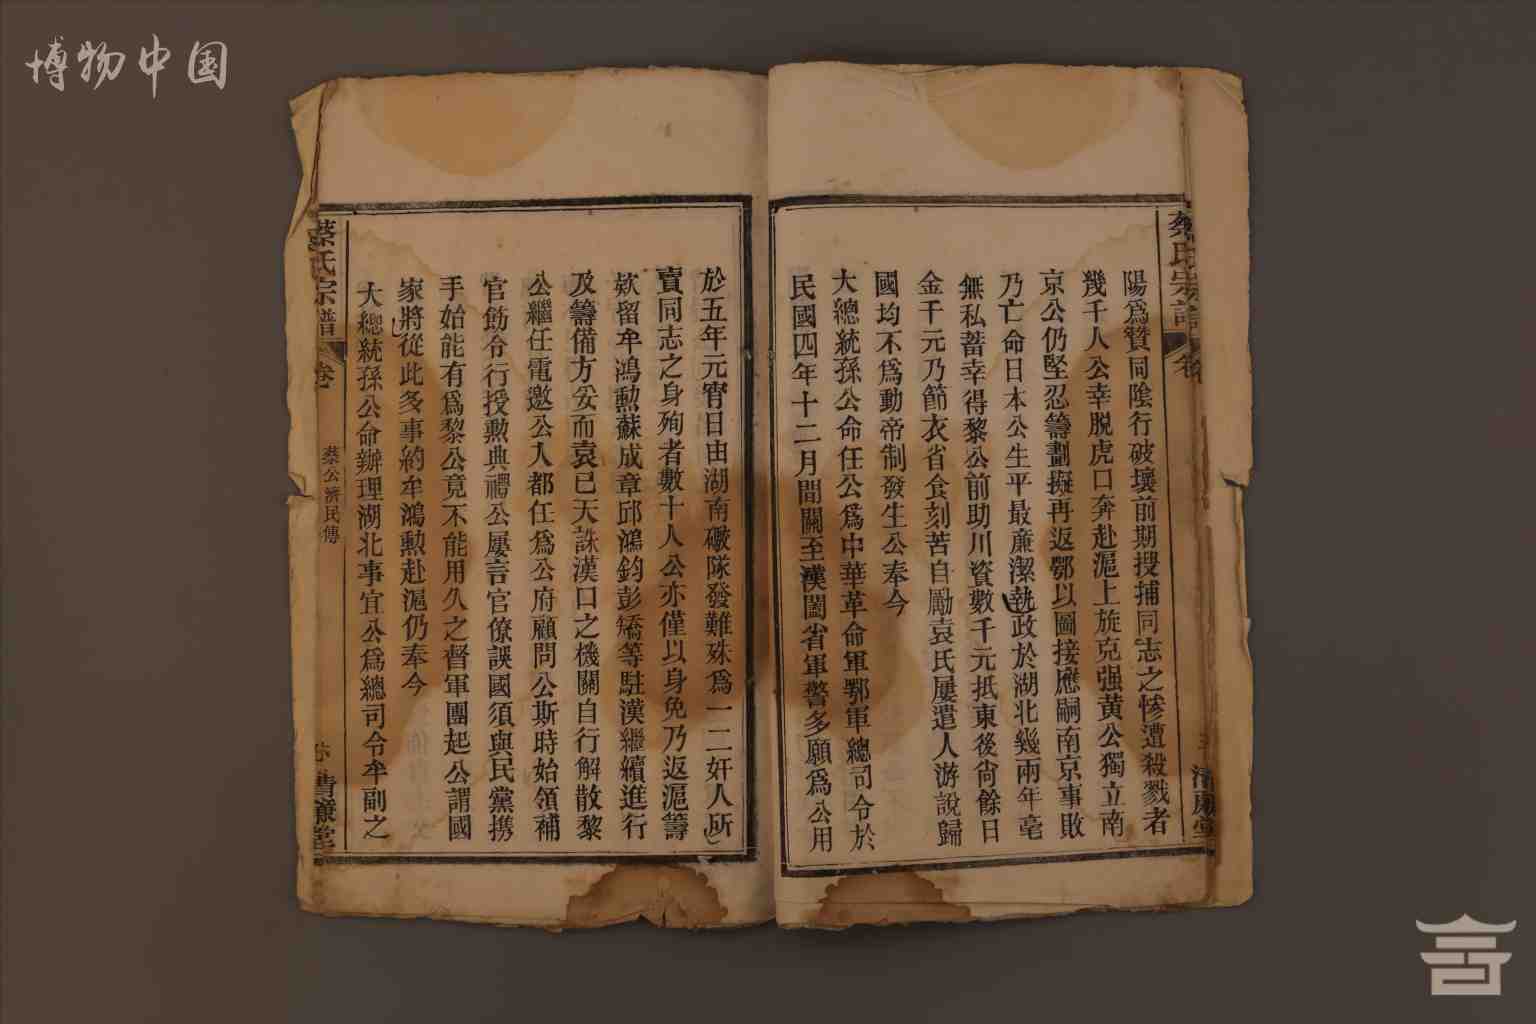 博物中国
蔡氏宗譜
卷
三
清廉堂
陽爲贊同陰行破壞前期搜捕同志之慘遭殺戮者
幾千人公幸脫虎口奔赴滬上旋克强黄公獨立南
京公仍堅忍籌劃擬再返鄂以圖接應嗣南京事敗
乃亡命日本公生平最廉潔執政於湖北幾兩年毫
無私蓄幸得黎公前助川資數千元抵東後尙餘日
金千元乃節衣省食刻苦自勵袁氏屢遣人游說歸
國均不爲動帝制發生公奉今
大總統孫公命任公爲中華革命軍鄂軍總司令於
民國四年十二月間關至漢闔省軍警多願爲公用
於五年元宵日由湖南礮隊發難殊爲一二奸人所
賣同志之身殉者數十人公亦僅以身免乃返滬籌
欵留牟鴻勲蘇成章邱鴻鈞彭矯等駐漢繼續進行
及籌備方妥而袁已天誅漢口之機關自行解散黎
公繼任電邀公入都任爲公府顧問公斯時始領補
官飭令行授勲典禮公屢言官僚誤國須與民黨携
手始能有爲黎公竟不能用久之督軍團起公謂國
家將從此多事約牟鴻勲赴滬仍奉今
大總統孫公命辦理湖北事宜公爲總司令牟副之
蔡氏宗譜
卷
蔡公濟民傳
清廉堂